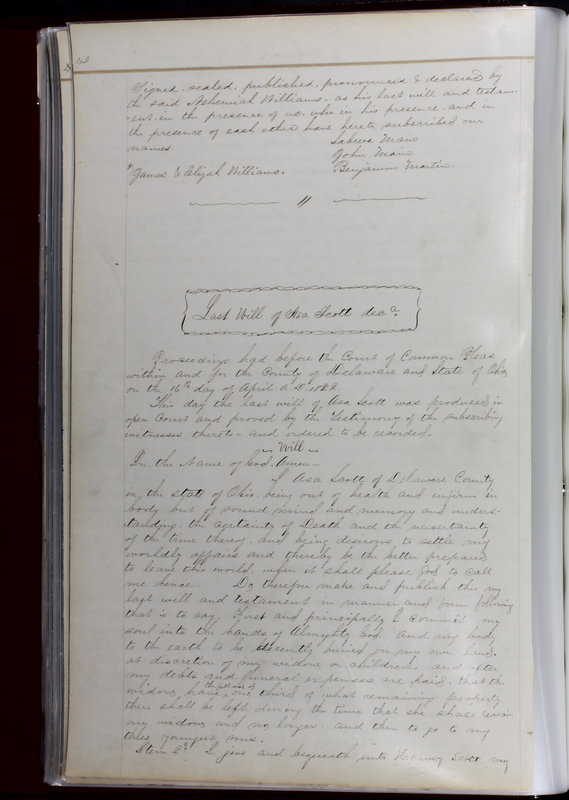 Signed, sealed, published, pronounced & declared by
the said Nehemiah Williams, as his last will and testam
ent in the presence of us, who in his presence, and in
the presence of each other have hereto subscribed our
names
Sabeers Main
John Main
Benjamin Martin
James & Elijah Williams.
"
Last Will of Asa Scott decd.
Proceedings had before the Court of Common Pleas
within and for the County of Delaware and State of Ohio
on the 16th day of April A.D. 1822
This day the last will of Asa Scott was produced in
open Court and proved by the Testimony of the subscribing
witnesses thereto - and ordered to be recorded.
Will
In the Name of God. Amen -
I Asa Scott of Delaware County
in the state of Ohio, being out of health and infirm in
body, but of sound mind and memory and unders-
tanding, the certainty of Death and the uncertainty
of the time thereof, and being desirous to settle my
worldly affairs and thereby be the better prepared
to leave this world when it shall please God to call
me hence. Do therefore make and publish this my
last will and testament in manner and form following
that is to say, First and principally I commit my
soul into the hands of Almighty God. And my body
to the earth to be decently buried on my own land,
at discretion of my widow or children, and after
my debts and funeral expenses are paid, that the
widow have the full use of one third of what remaining property
there shall be left during the time that she shall remain
my widow and no longer. and then to go to my
three youngest sons.
Item 2d I give and bequeath unto Harvey Scott my